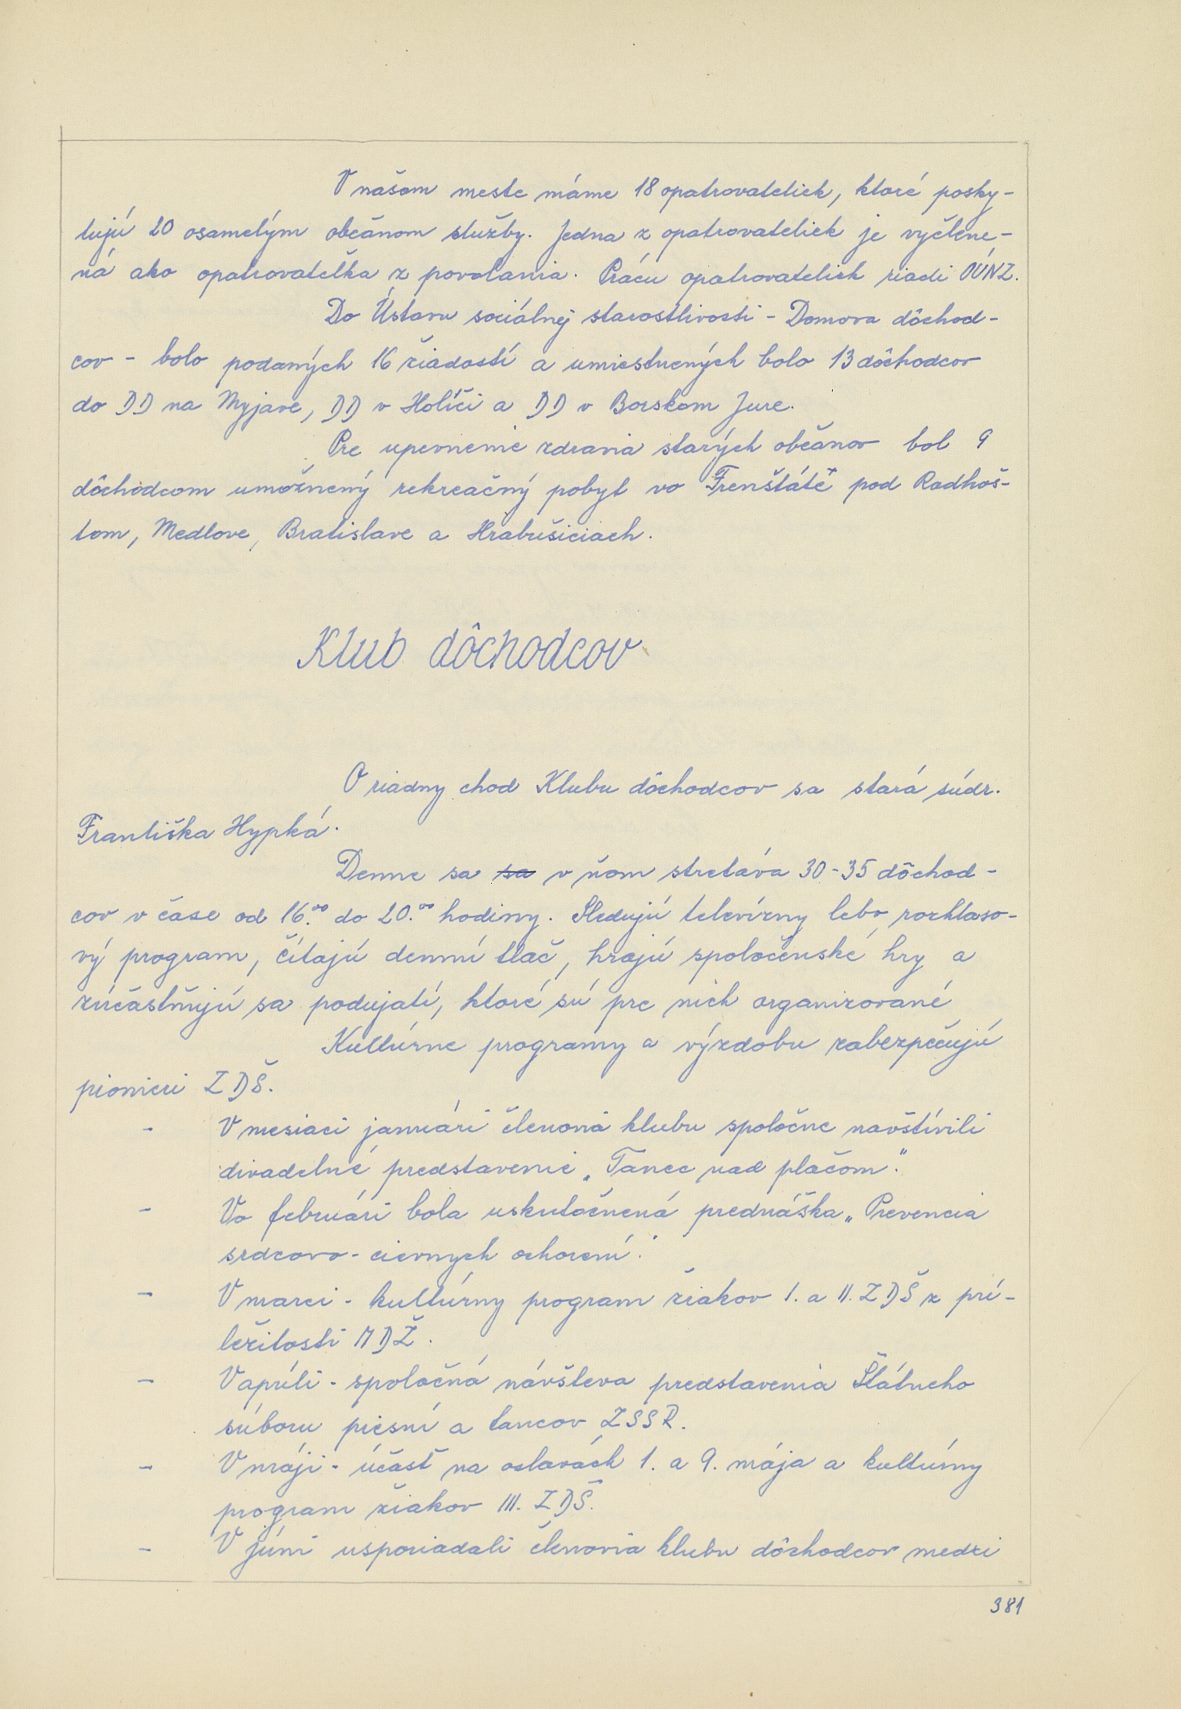 V našom meste máme 18 opatrovateliek, ktoré posky-
tujú 20 osamelým občanom služby. Jedna z opatrovateliek je vyčlene-
ná ako opatrovateľka z povolania. Prácu opatrovateliek riadi OÚNZ.
Do Ústavu sociálnej starostlivosti - Domova dôchod-
cov - bolo podaných 16 žiadostí a umiestnených bolo 13 dôchodcov
do DD na Myjave, DD v Holíči a DD v Borskom Jure.
Pre upevnenie zdravia starých občanov bol 9
dôchodcom umožnený rekreačný pobyt vo Frenštátě pod Radhoš-
tom, Medlove, Bratislave a Hrabušiciach.
Klub dôchodcov
O riadny chod Klubu dôchodcov sa stará súdr.
Františka Hypká.
Denne sa sa v ňom stretáva 30-35 dôchod-
cov v čase od 16.⁰⁰ do 20.⁰⁰ hodiny. Sledujú televízny lebo rozhlaso-
vý program, čítajú dennú tlač, hrajú spoločenské hry a
zúčastňujú sa podujatí, ktoré sú pre nich organizované
Kultúrne programy a výzdobu zabezpečujú
pionieri ZDŠ.
- V mesiaci januári členovia klubu spoločne navštívili
divadelné predstavenie „Tanec nad plačom".
- Vo februári bola uskutočnená prednáška „Prevencia
srdcovo-cievnych ochorení".
- V marci - kultúrny program žiakov I. a II. ZDŠ z prí-
ležitosti MDŽ.
- V apríli - spoločná návšteva predstavenia Štátneho
súboru piesní a tancov ZSSR.
- V máji - účasť na oslavách 1. a 9. mája a kultúrny
program žiakov III. ZDŠ.
- V júni usporiadali členovia klubu dôchodcov medzi
381